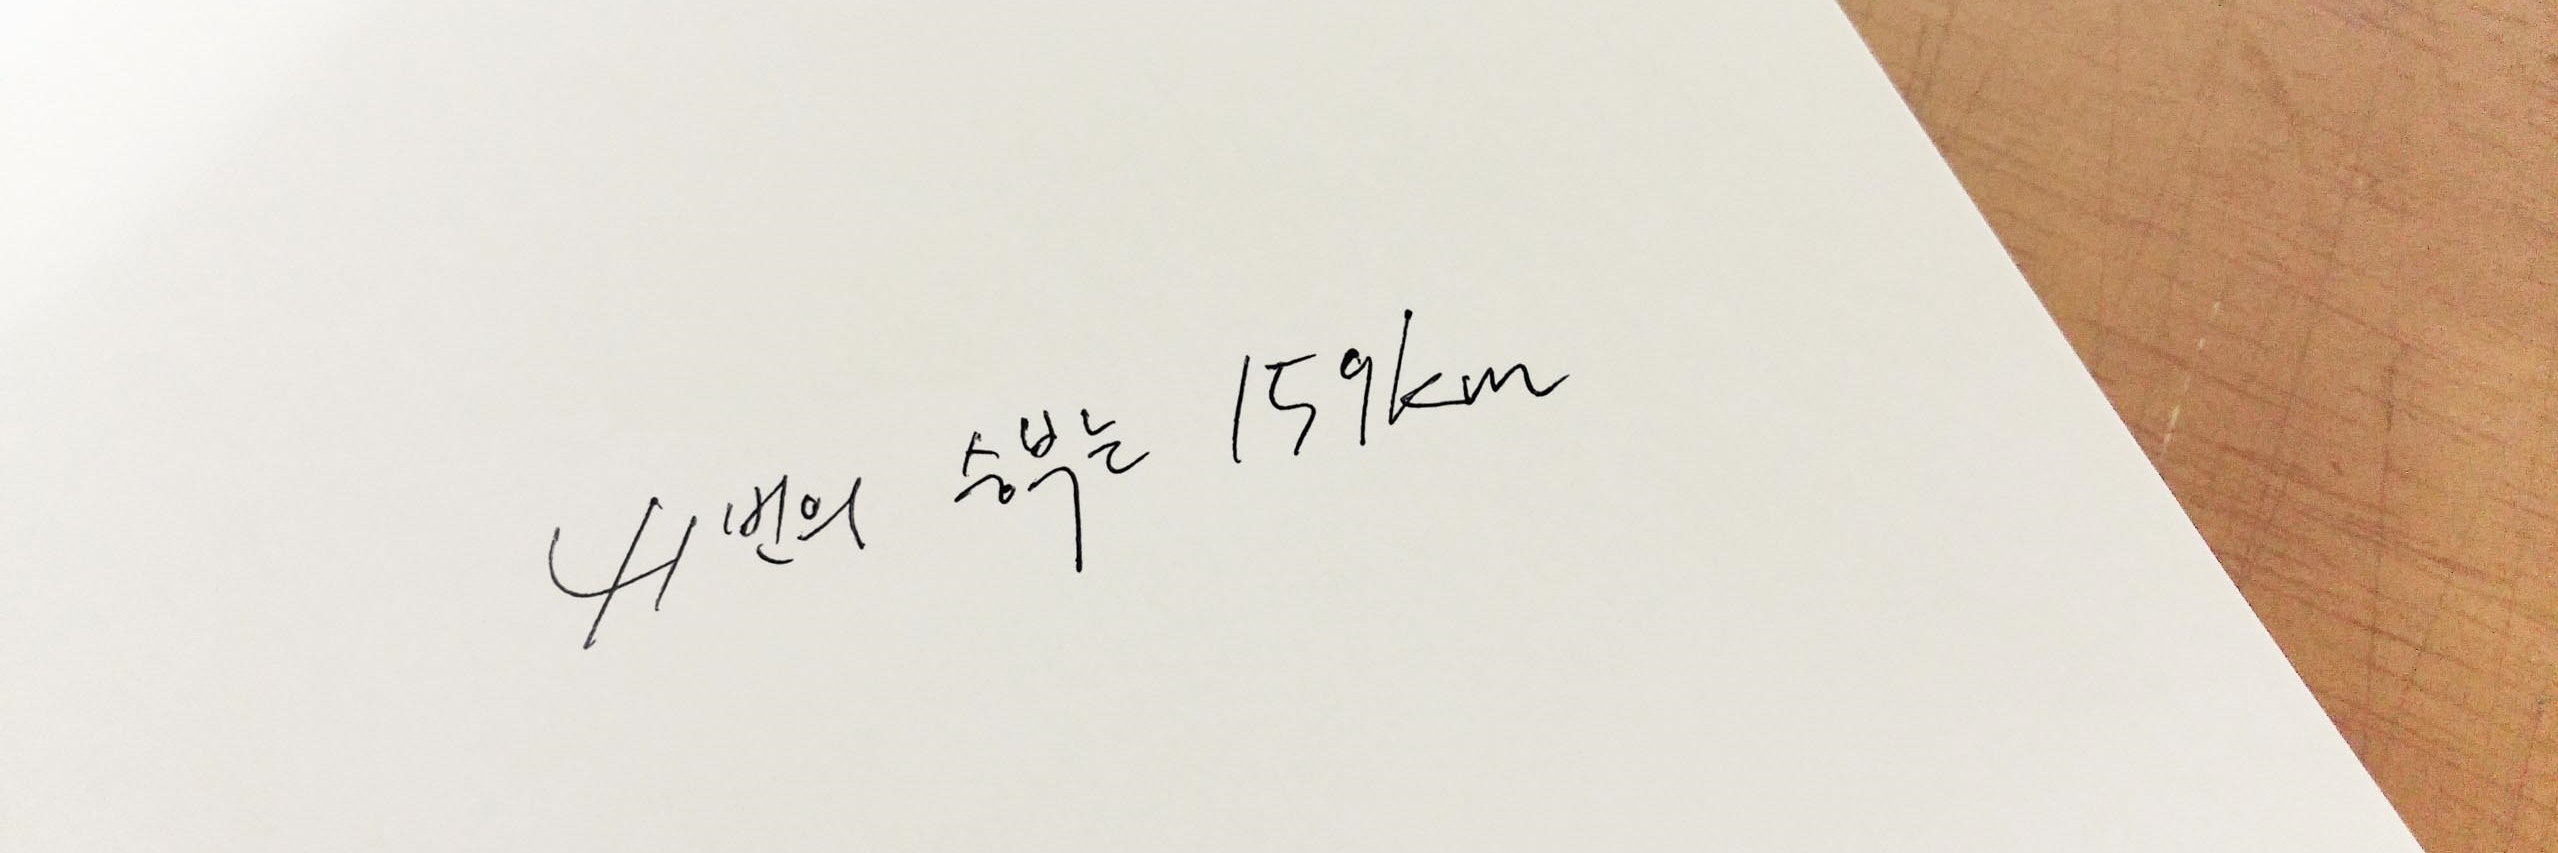 4번의 승부는 159km